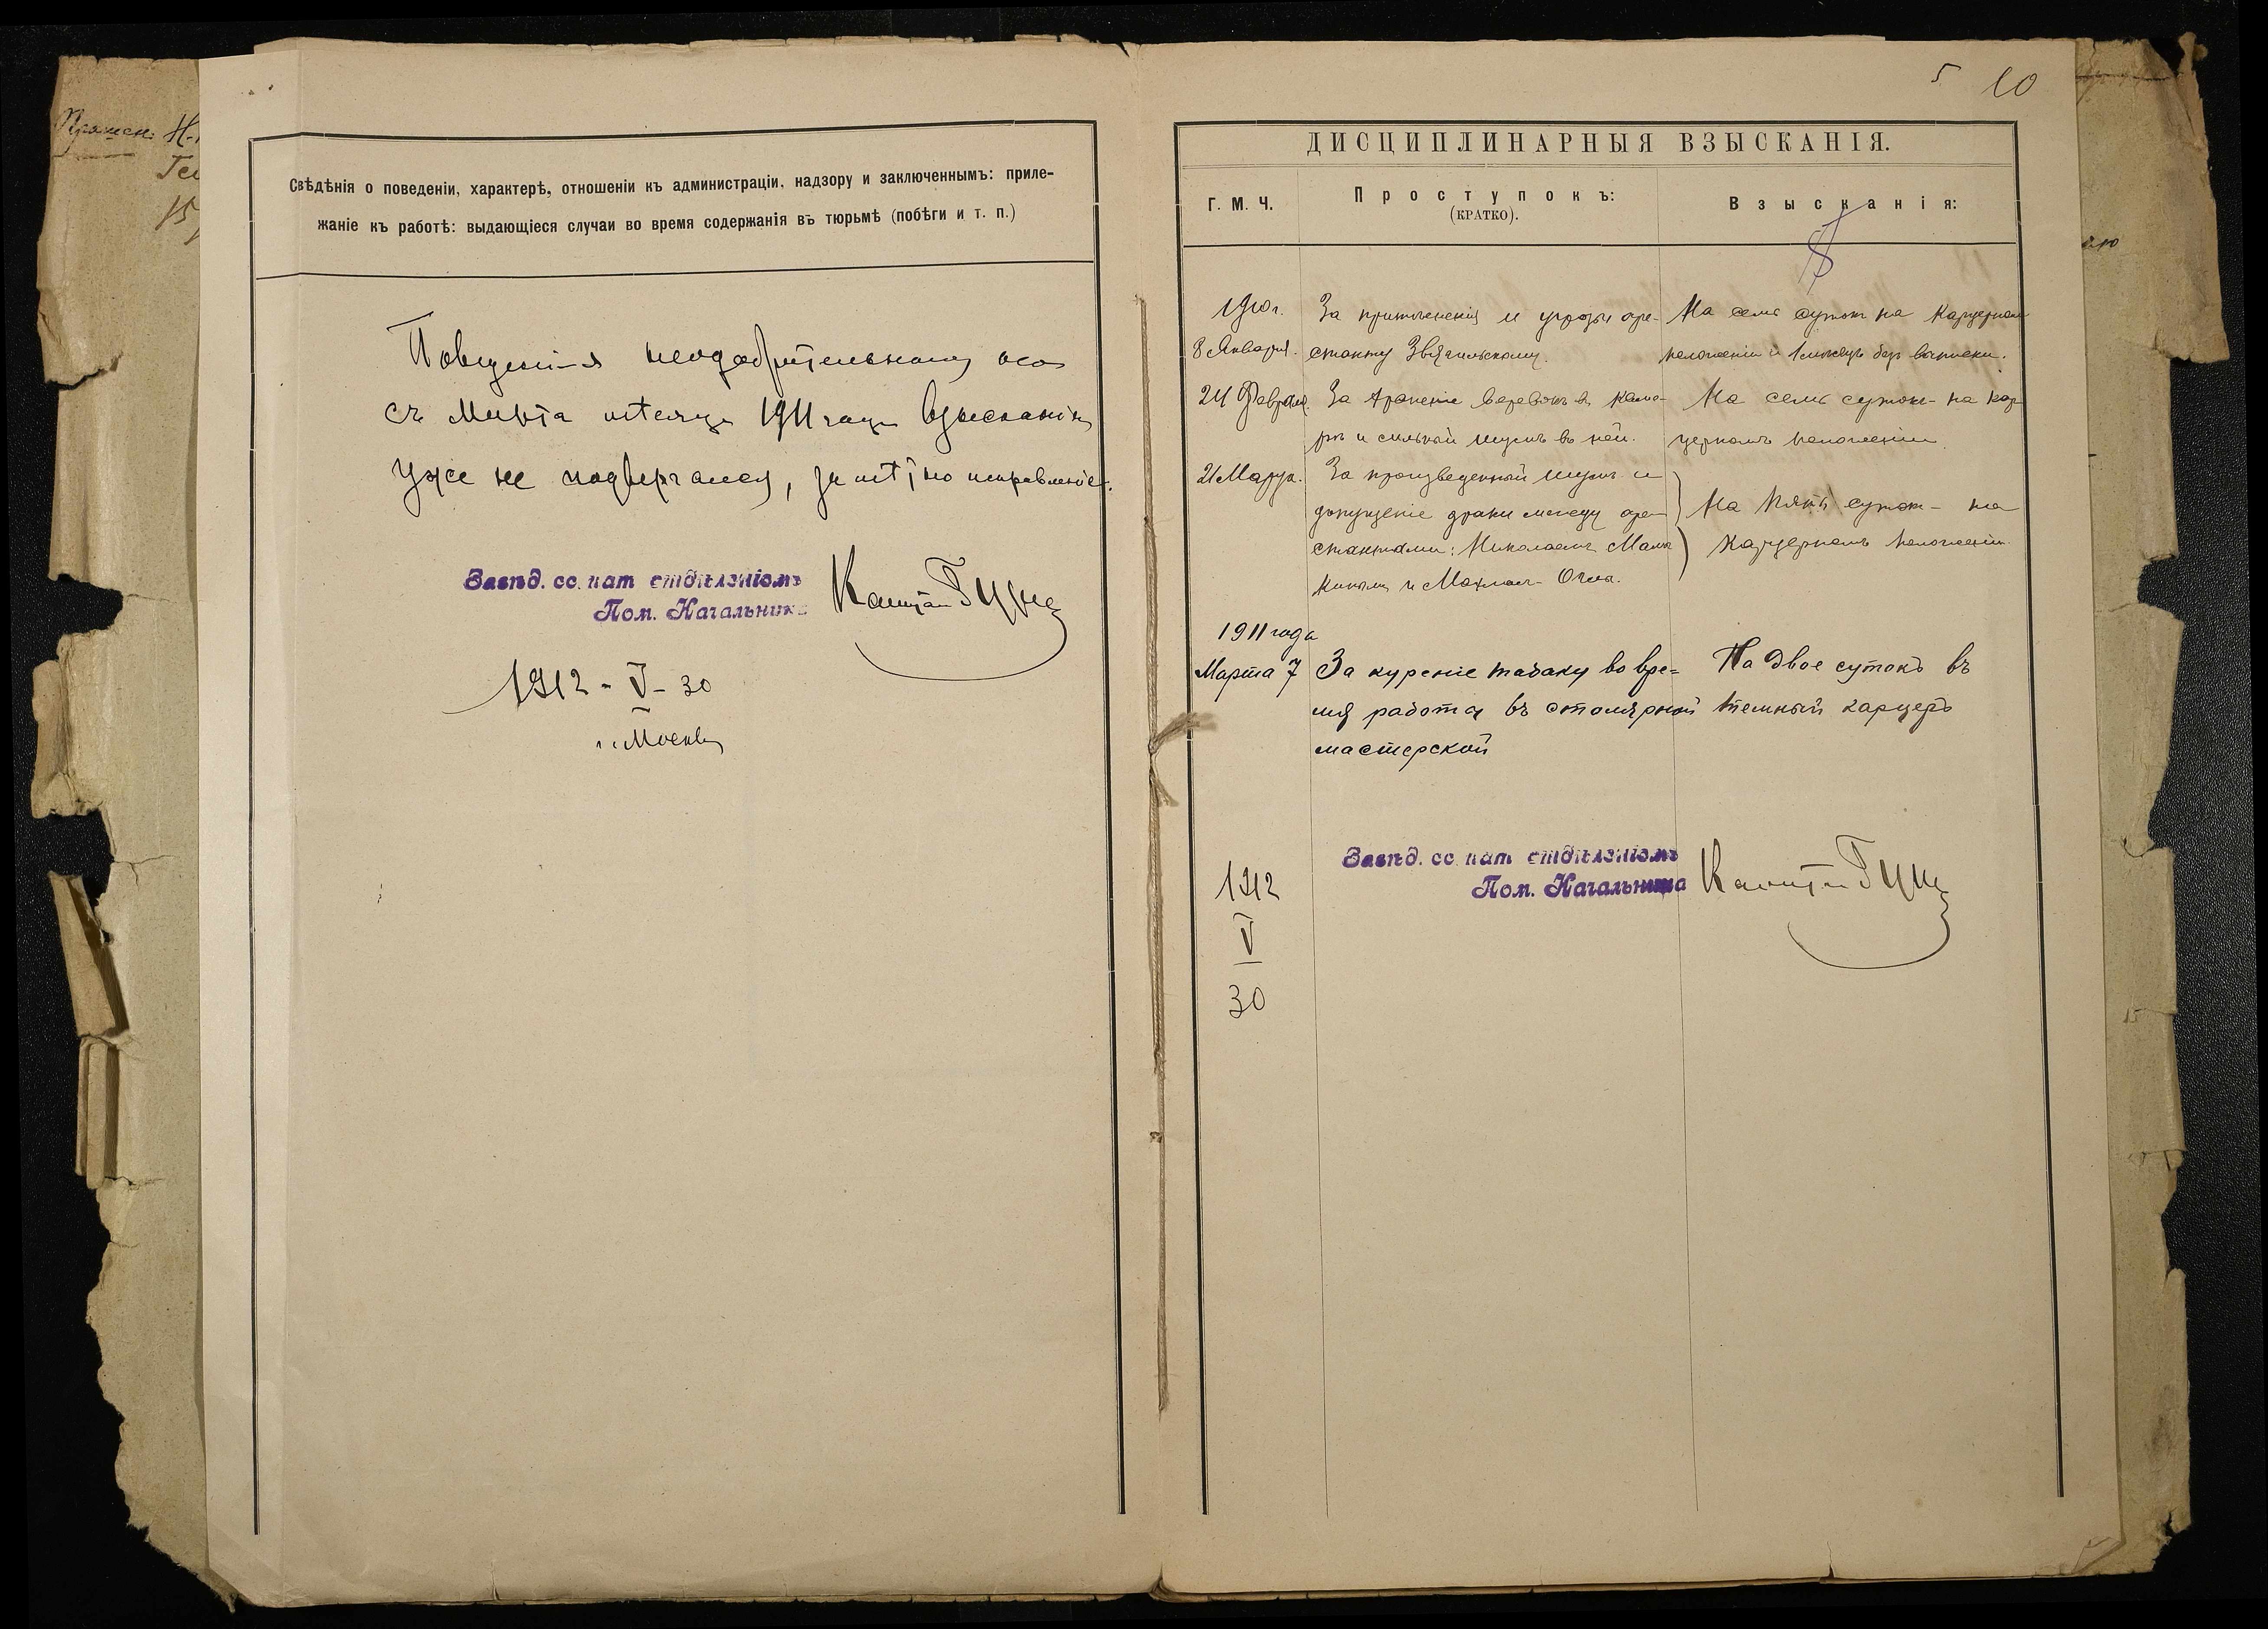 Свѣдѣнія о поведеніи, характерѣ, отношеніи къ администраціи, надзору и заключеннымъ: приле-
жаніе къ работѣ: выдающіеся случаи во время содержанія въ тюрьмѣ (побѣги и т. п.)
Поведенія неодобрительнаго,
съ Марта мѣсяца 1911 года взысканіямъ
уже не подвергался, замѣтно исправленіе.
Завѣд. отдѣленіемъ
Пом. Начальника Капитан
1912 - V - 30
г. Москва
5 10
ДИСЦИПЛИНАРНЫЯ ВЗЫСКАНІЯ.
Г. М. Ч.
Проступокъ:
(КРАТКО).
Взысканія:
1910 г. За притѣсненія и угрозы аре- На семь сутокъ на карцерномъ
8 Января. станту положеніи и 1 мѣсяцъ безъ выписки.
24 Февраля. За храненіе веревокъ въ каме- На семь сутокъ на кар-
рѣ и сильный шумъ въ ней. церномъ положеніи
21 Марта. За произведенный шумъ и
допущеніе драки между аре- На пять сутокъ на
стантами: Николаемъ карцерномъ положеніи.
1911 года
Марта 7 За куреніе табаку во вре= На двое сутокъ въ
мя работы въ столярной темный карцеръ
мастерской
Завѣд. отдѣленіемъ
Пом. Начальника Капитан
1912
V
30